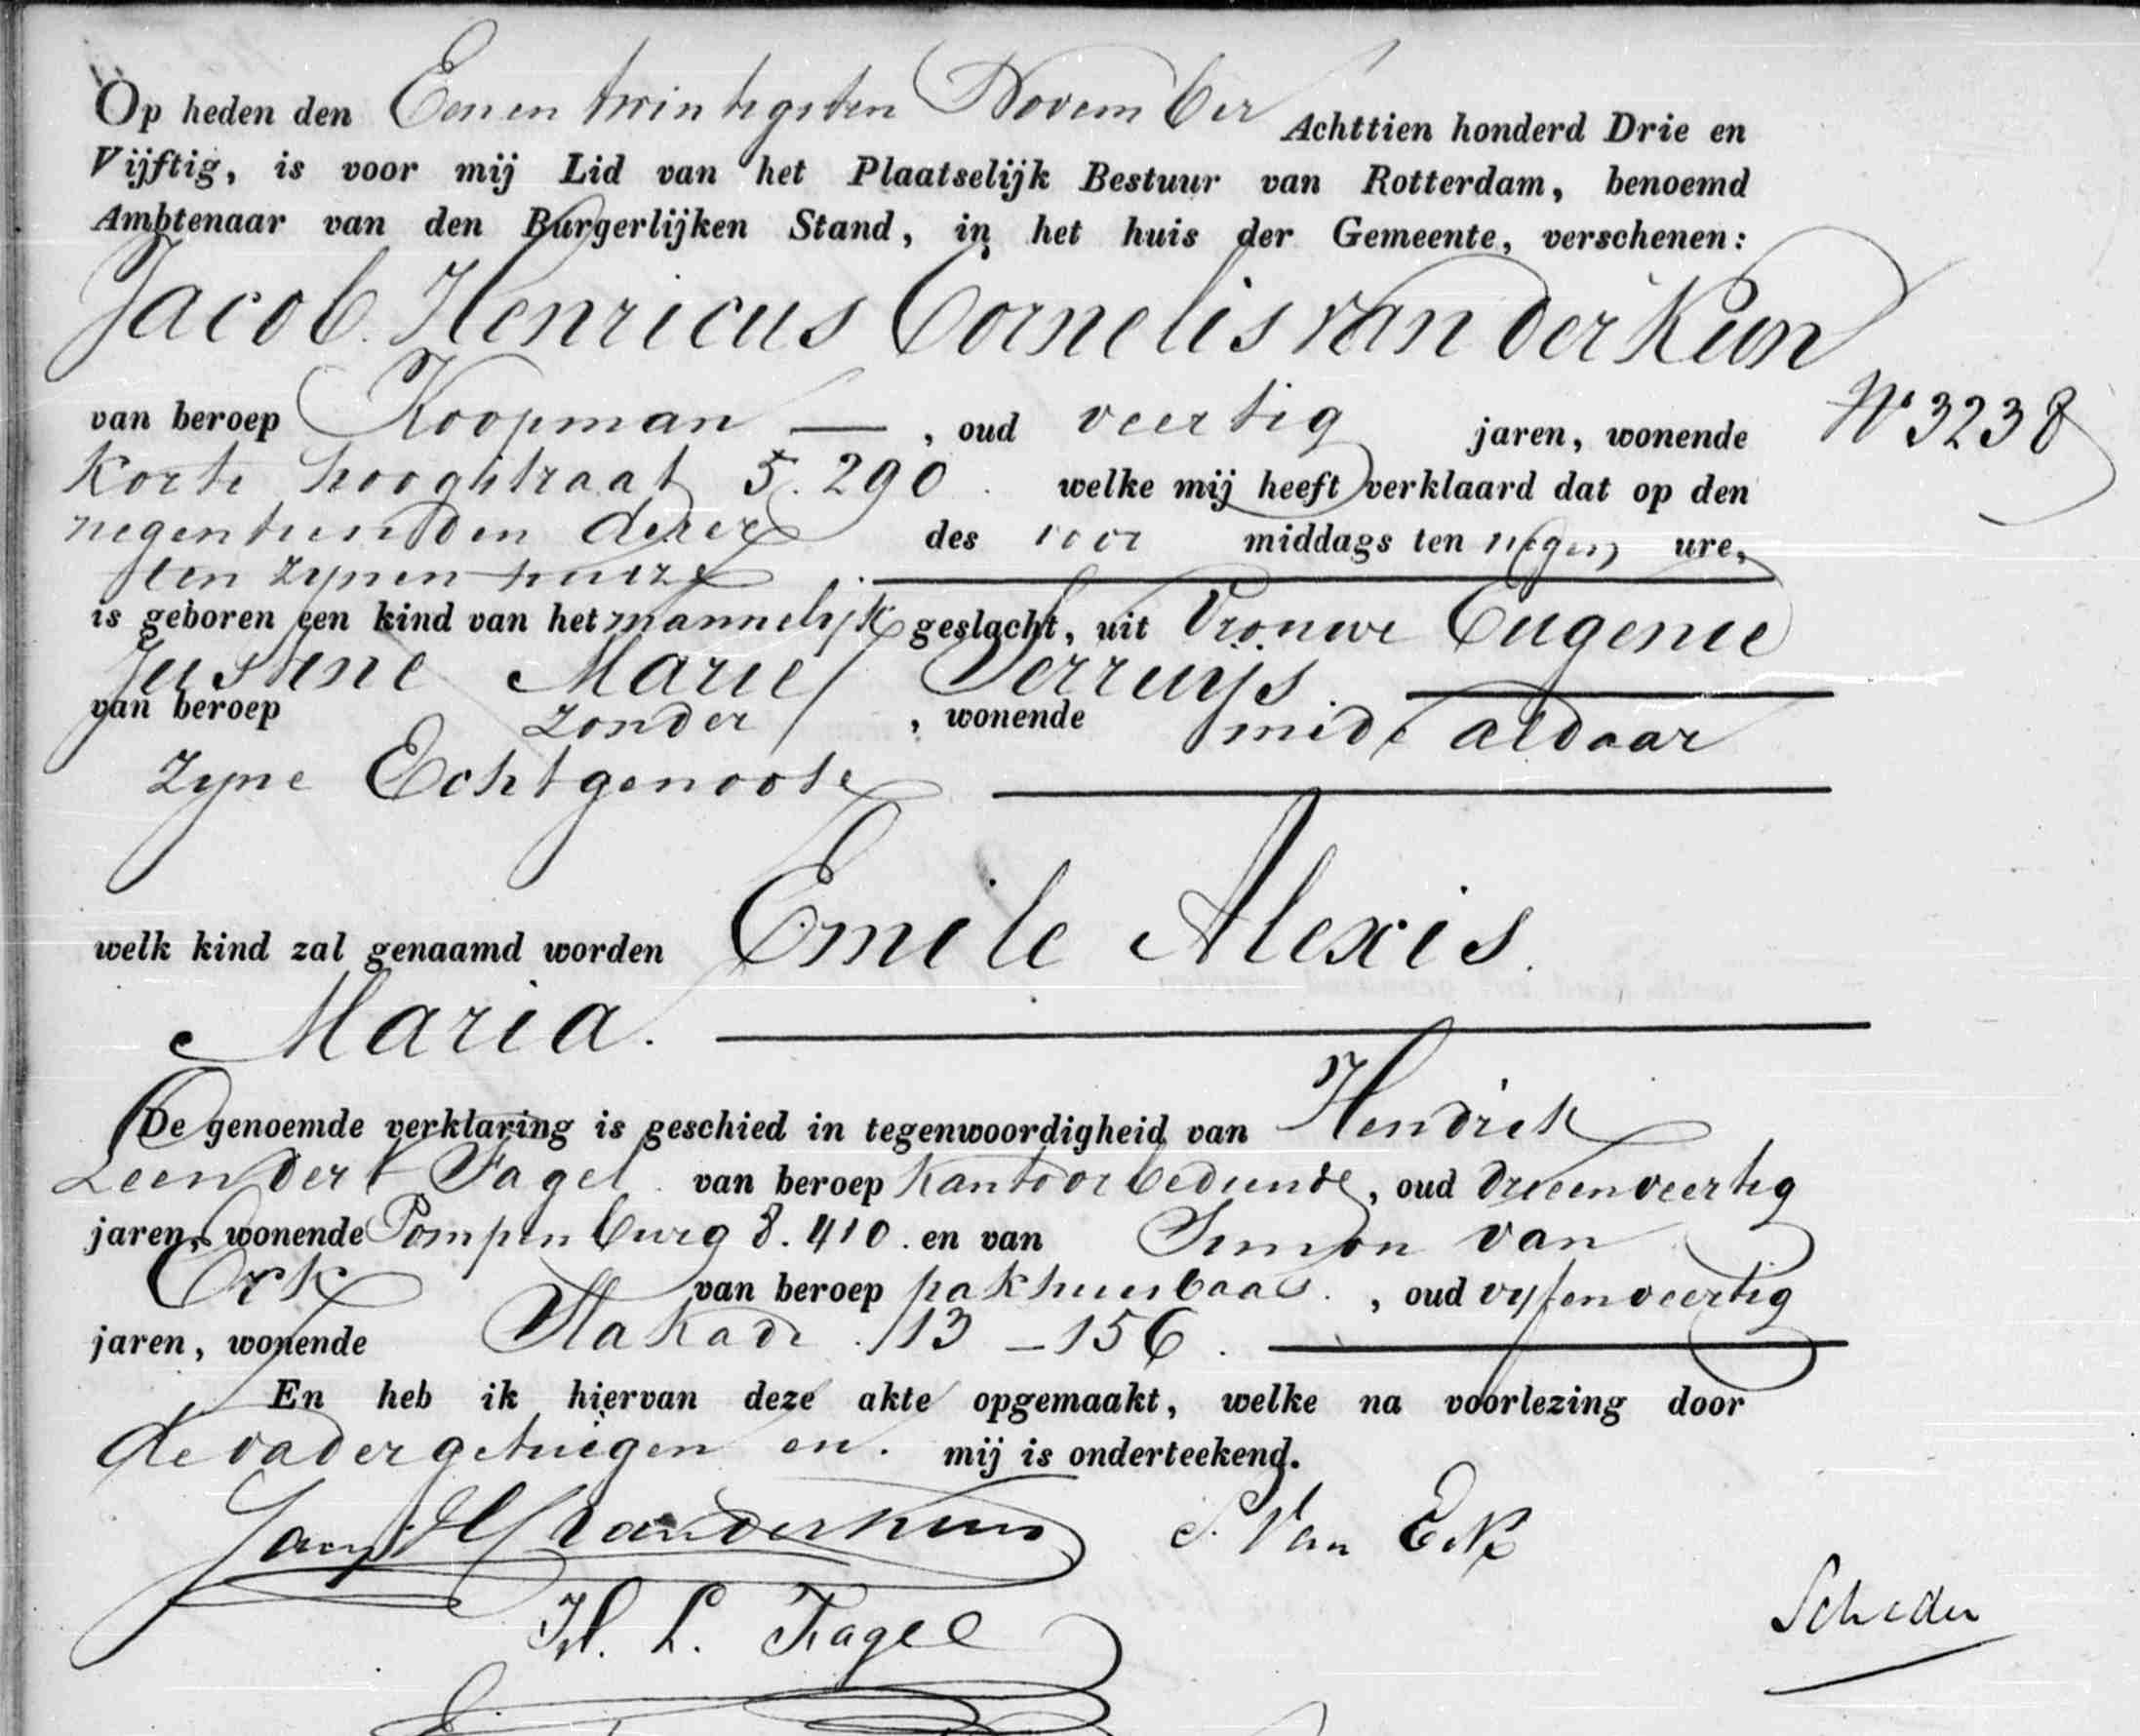 Op heden den Eenentwintigsten November Achttien honderd Drie en
Vijftig, is voor mij Lid van het Plaatselijk Bestuur van Rotterdam, benoemd
Ambtenaar van den Burgerlijken Stand, in het huis der Gemeente, verschenen:
Jacob Henricus Cornelis van der Kun
van beroep Koopman — , oud veertig jaren, wonende
N° 3238
Korte hoogstraat 5. 290 welke mij heeft verklaard dat op den
negentienden dezer des voor middags ten negen ure,
ten zynen huize
is geboren een kind van het mannelijk geslacht, uit Vrouwe Eugenie
Justine Marie Serruijs
van beroep zonder , wonende mede aldaar
zyne Echtgenoote
welk kind zal genaamd worden Emile Alexis
Maria.
De genoemde verklaring is geschied in tegenwoordigheid van Hendrik
Leendert Fagel van beroep Kantoorbediende, oud drieenveertig
jaren, wonende Pompenburg 8. 410. en van Simon van
Eck van beroep pakhuisbaas. , oud vyfenveertig
jaren, wonende Stakade 13 – 156.
En heb ik hiervan deze akte opgemaakt, welke na voorlezing door
de vader getuigen en. mij is onderteekend.
van der Kun S. Van Eck
H. L. Fagel